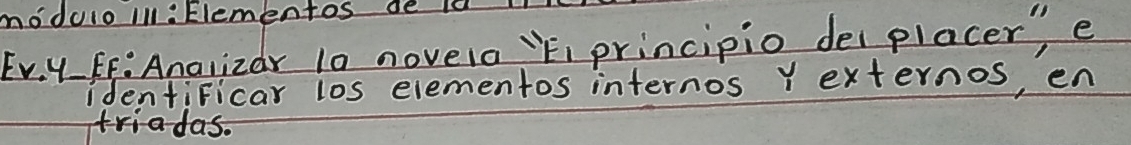 módulo III: Elementos de la
Ev.4_EF: Analizar la novela "El principio del placer", e
identificar los elementos internos y externos, en
triadas.